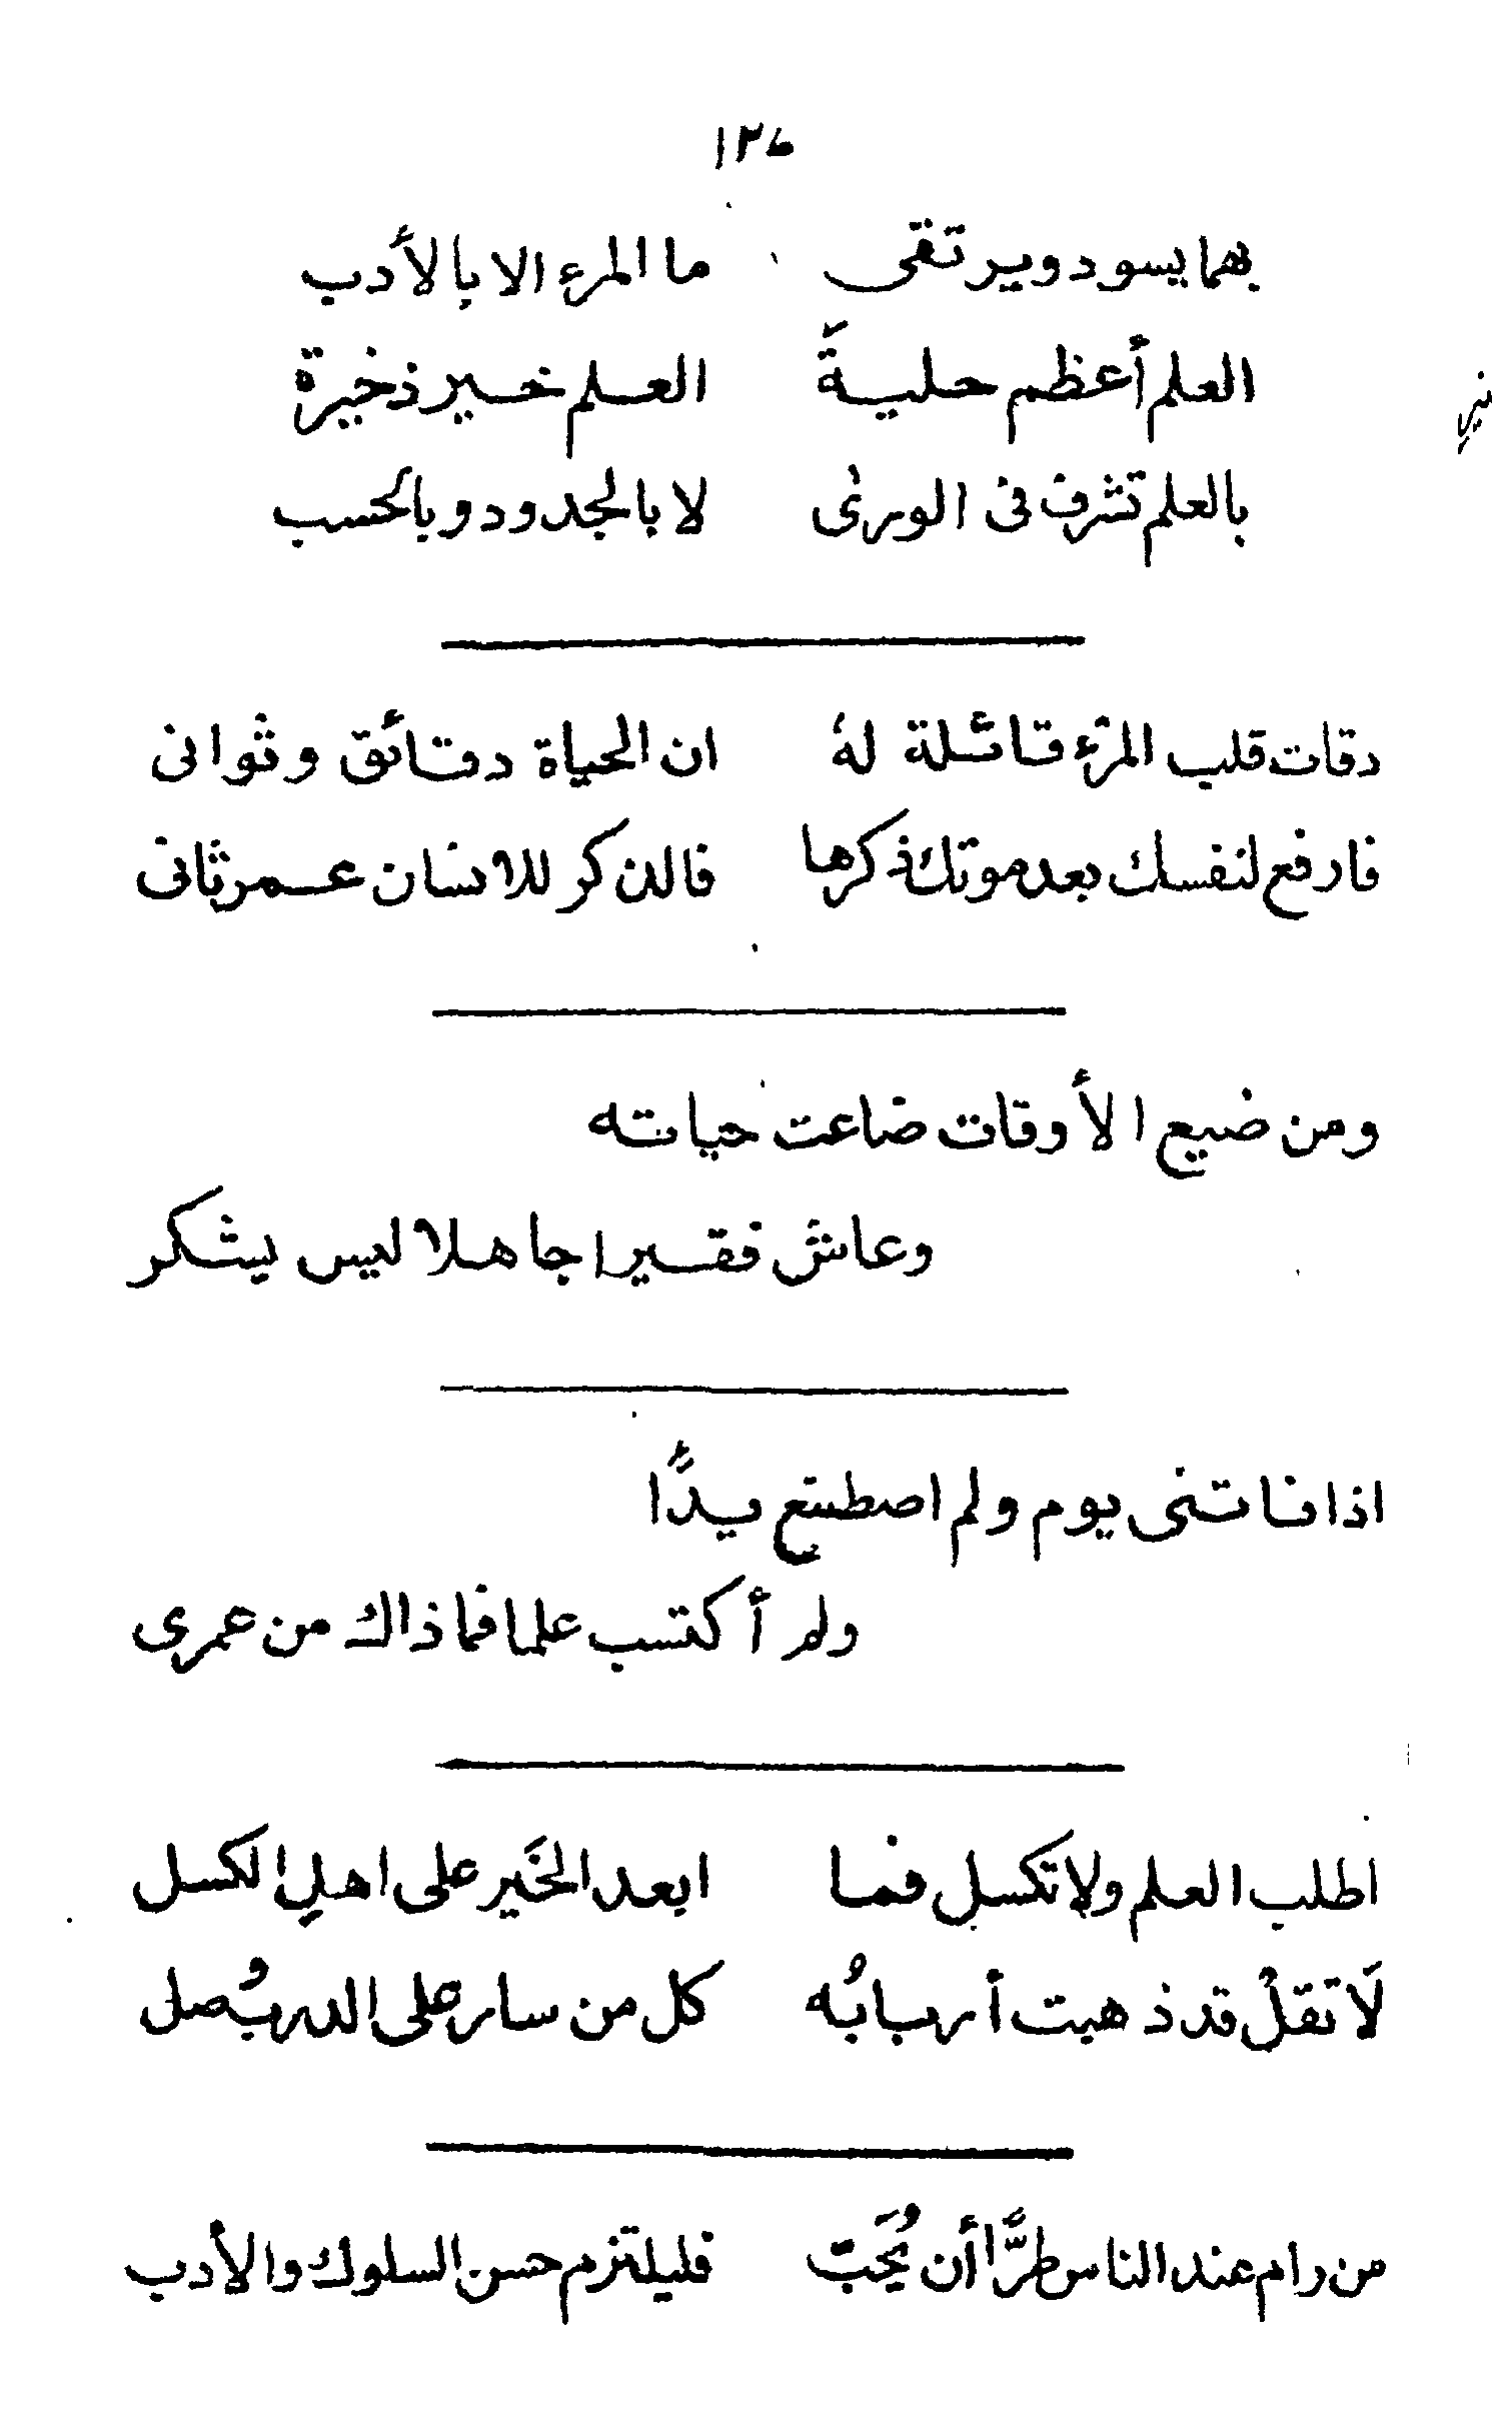 ١٢٦
بهما يسود ويرتقى ما المرء الا بالأدب
العلم أعظم حليةً العلم خير ذخيرة
بالعلم تشرف فى الورى لا بالجدود وبالحسب
دقات قلب المرء قائلة له ان الحياة دقائق وثوانى
فارفع لنفسك بعد موتك ذكرها فالذكر للانسان عمر ثانى
ومن ضيع الأوقات ضاعت حياته
وعاش فقيرا جاهلا ليس يشكر
اذا فاتنى يوم ولم اصطنع يدًا
ولم أكتسب علما فما ذاك من عمرى
اطلب العلم ولا تكسل فما ابعد الخَير على اهلِ الكسل
لَا تقلْ قد ذهبت أربابُه كل من سار على الدرب وُصل
من رام عند الناس طرًّا أن يُحَب فليلتزم حسن السلوك والأدب